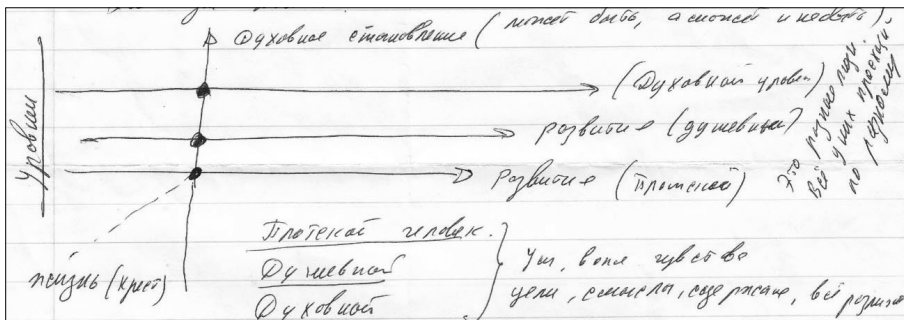 Духовное становление (может быть, а может и не быть),
Уровни
(Духовной уровен)
развитие (душевный)
развитие (Плотской)
Это разные люди.
Всё у них
по разному
жизнь (крест)
Плотской человек.
Душевной
Духовной
Ум, воля чувства
цели, смыслы, содержание, всё